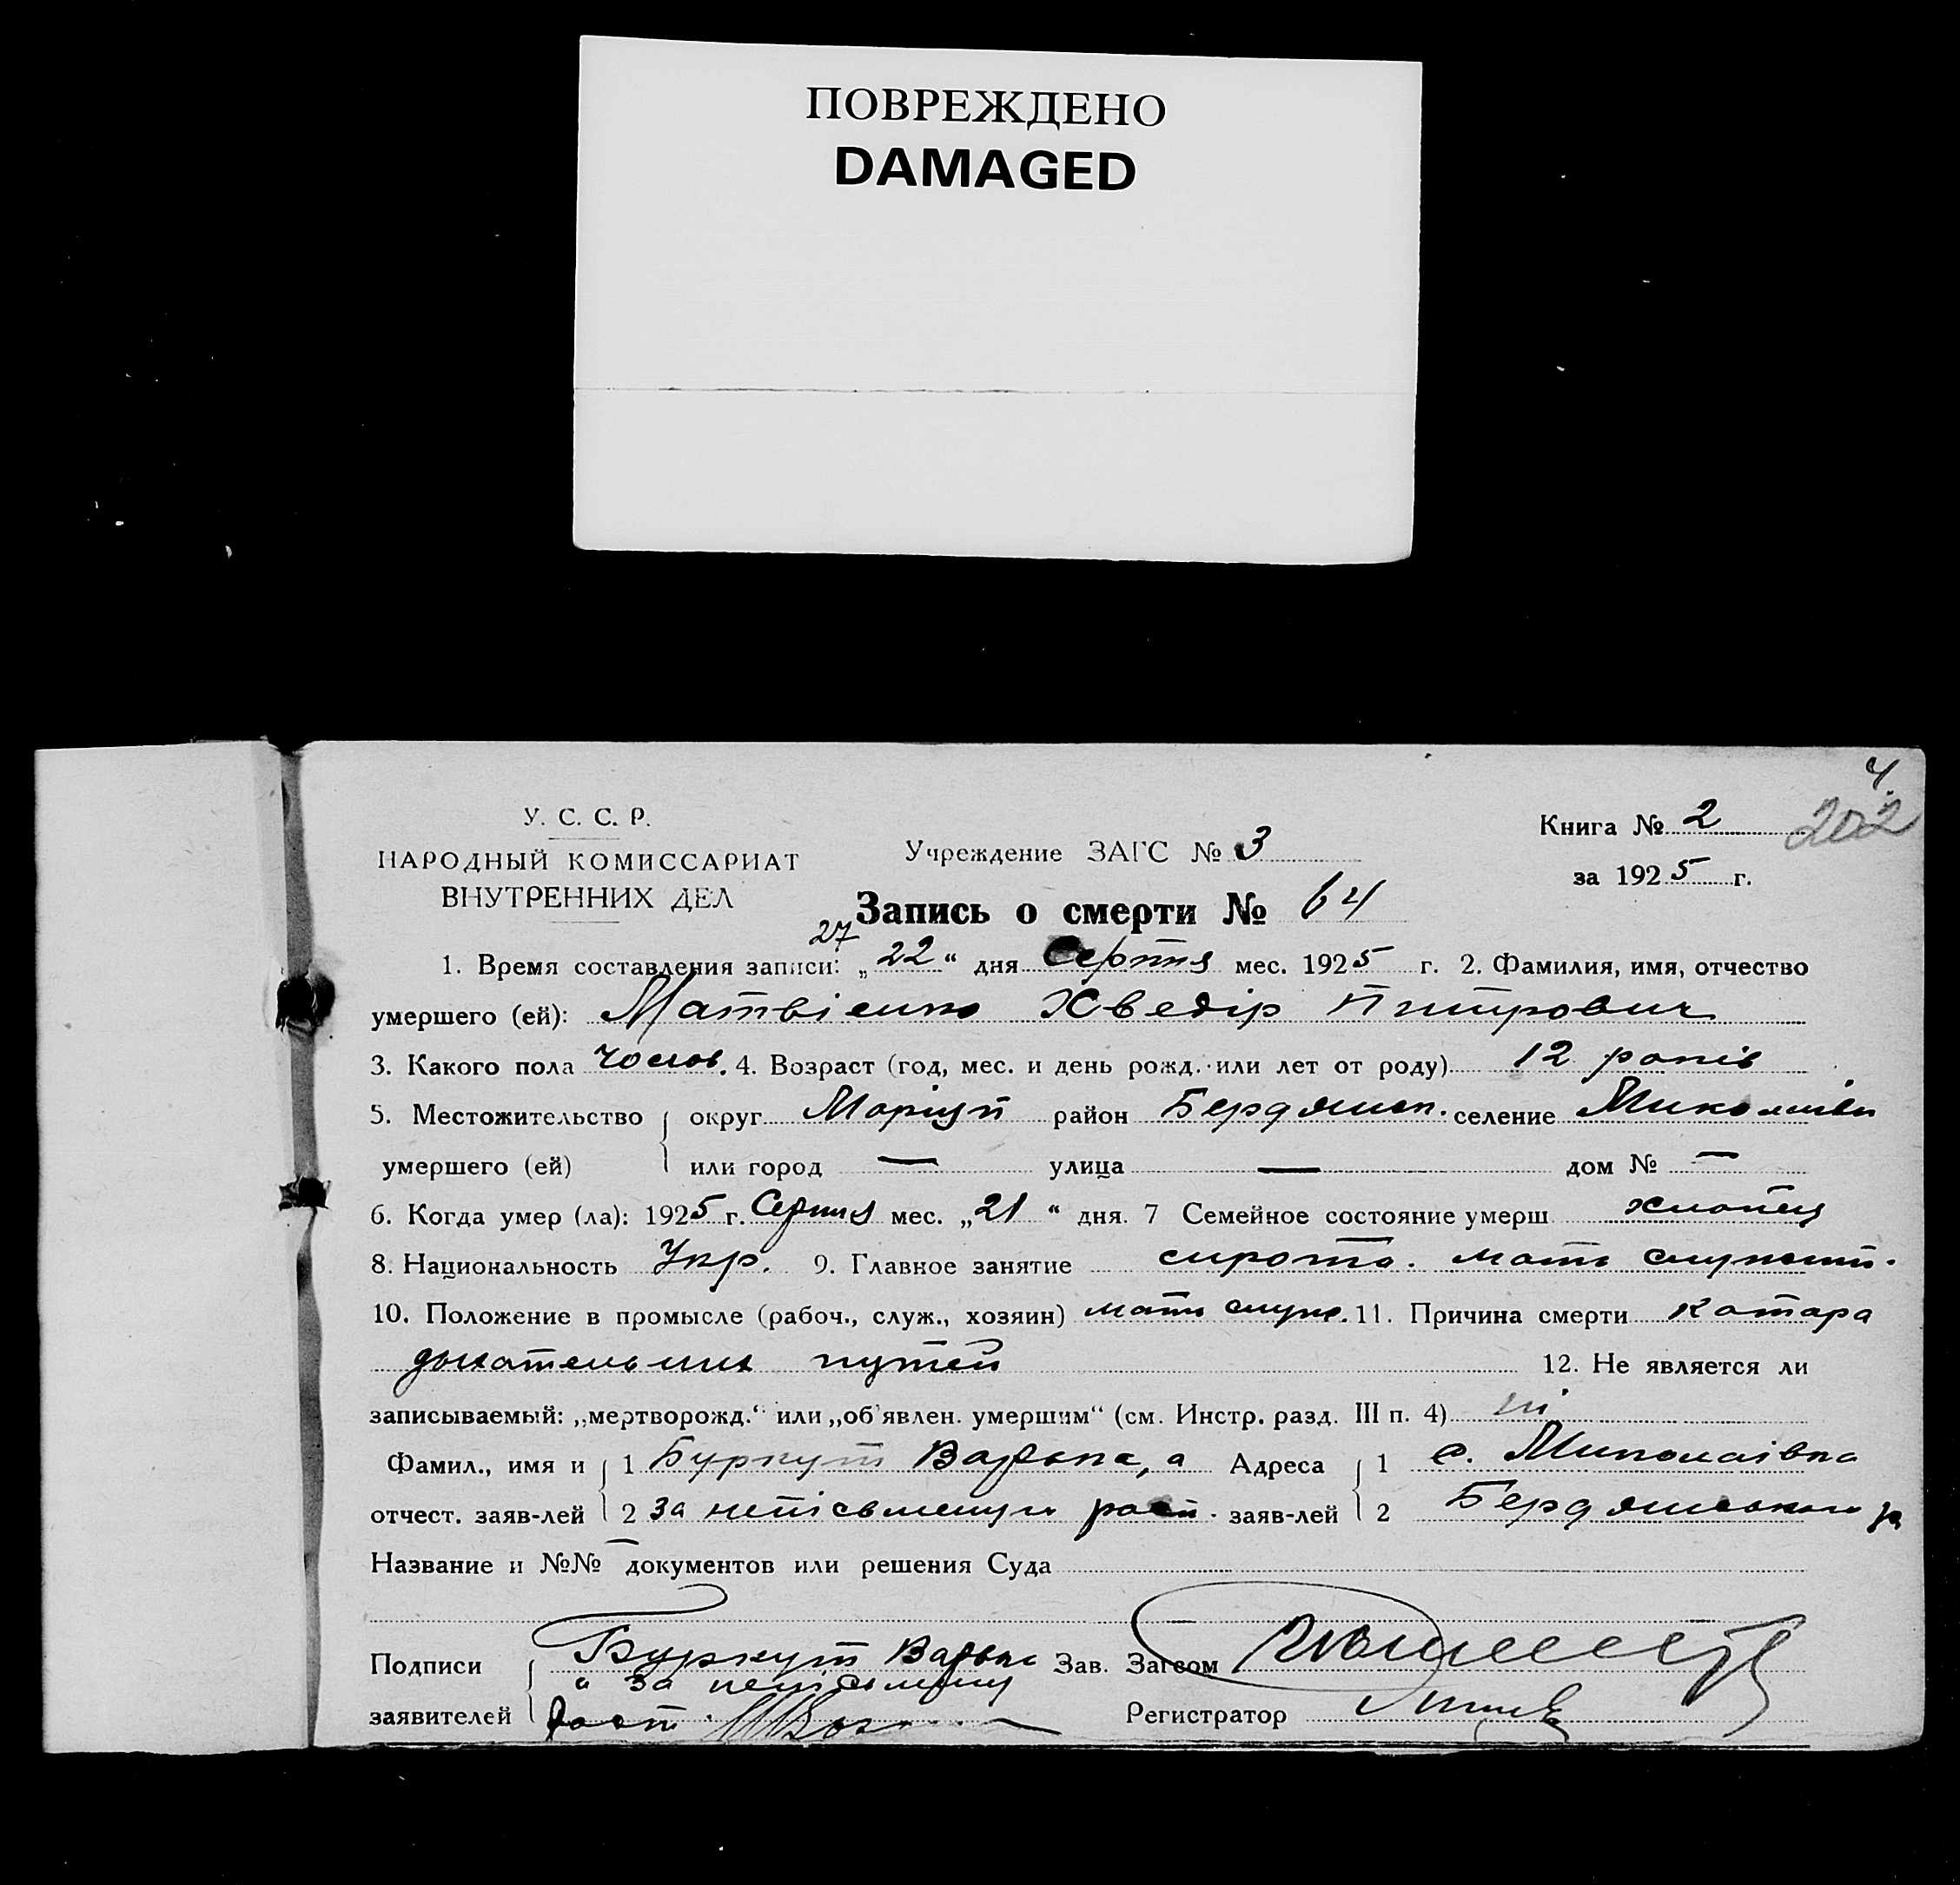 ПОВРЕЖДЕНО
DAMAGED
4.
202
У. С. С. Р.
НАРОДНЫЙ КОМИССАРИАТ
ВНУТРЕННИХ ДЕЛ
Учреждение ЗАГС № 3
Книга № 2
за 1925 г.
Запись о смерти № 64
27
1. Время составления записи: „22“ дня Серпня мес. 1925 г. 2. Фамилия, имя, отчество
умершего (ей): Матвіенко Хведір Питрович
3. Какого пола чолов. 4. Возраст (год, мес. и день рожд. или лет от роду) 12 років
5. Местожительство округ Маріуп район Бердянск. селение Миколаівк
умершего (ей) или город — улица — дом № —
6. Когда умер (ла): 1925 г. Серпня мес. „21“ дня. 7 Семейное состояние умерш хлопец
8. Национальность Укр. 9. Главное занятие сирота. мать служит.
10. Положение в промысле (рабоч., служ., хозяин) мать служ. 11. Причина смерти Катара
дыхательних путей 12. Не является ли
записываемый: „мертворожд.“ или „об'явлен. умершим“ (см. Инстр. разд. III п. 4) ні
Фамил., имя и 1 Буркут Варвка, а Адреса 1 с. Миколаівка
отчест. заяв-лей 2 за непісьменую росп. заяв-лей 2 Бердянського
Название и №№ документов или решения Суда
Подписи Буркут Зав. Загсом
а за непісьмену
заявителей росп. Регистратор